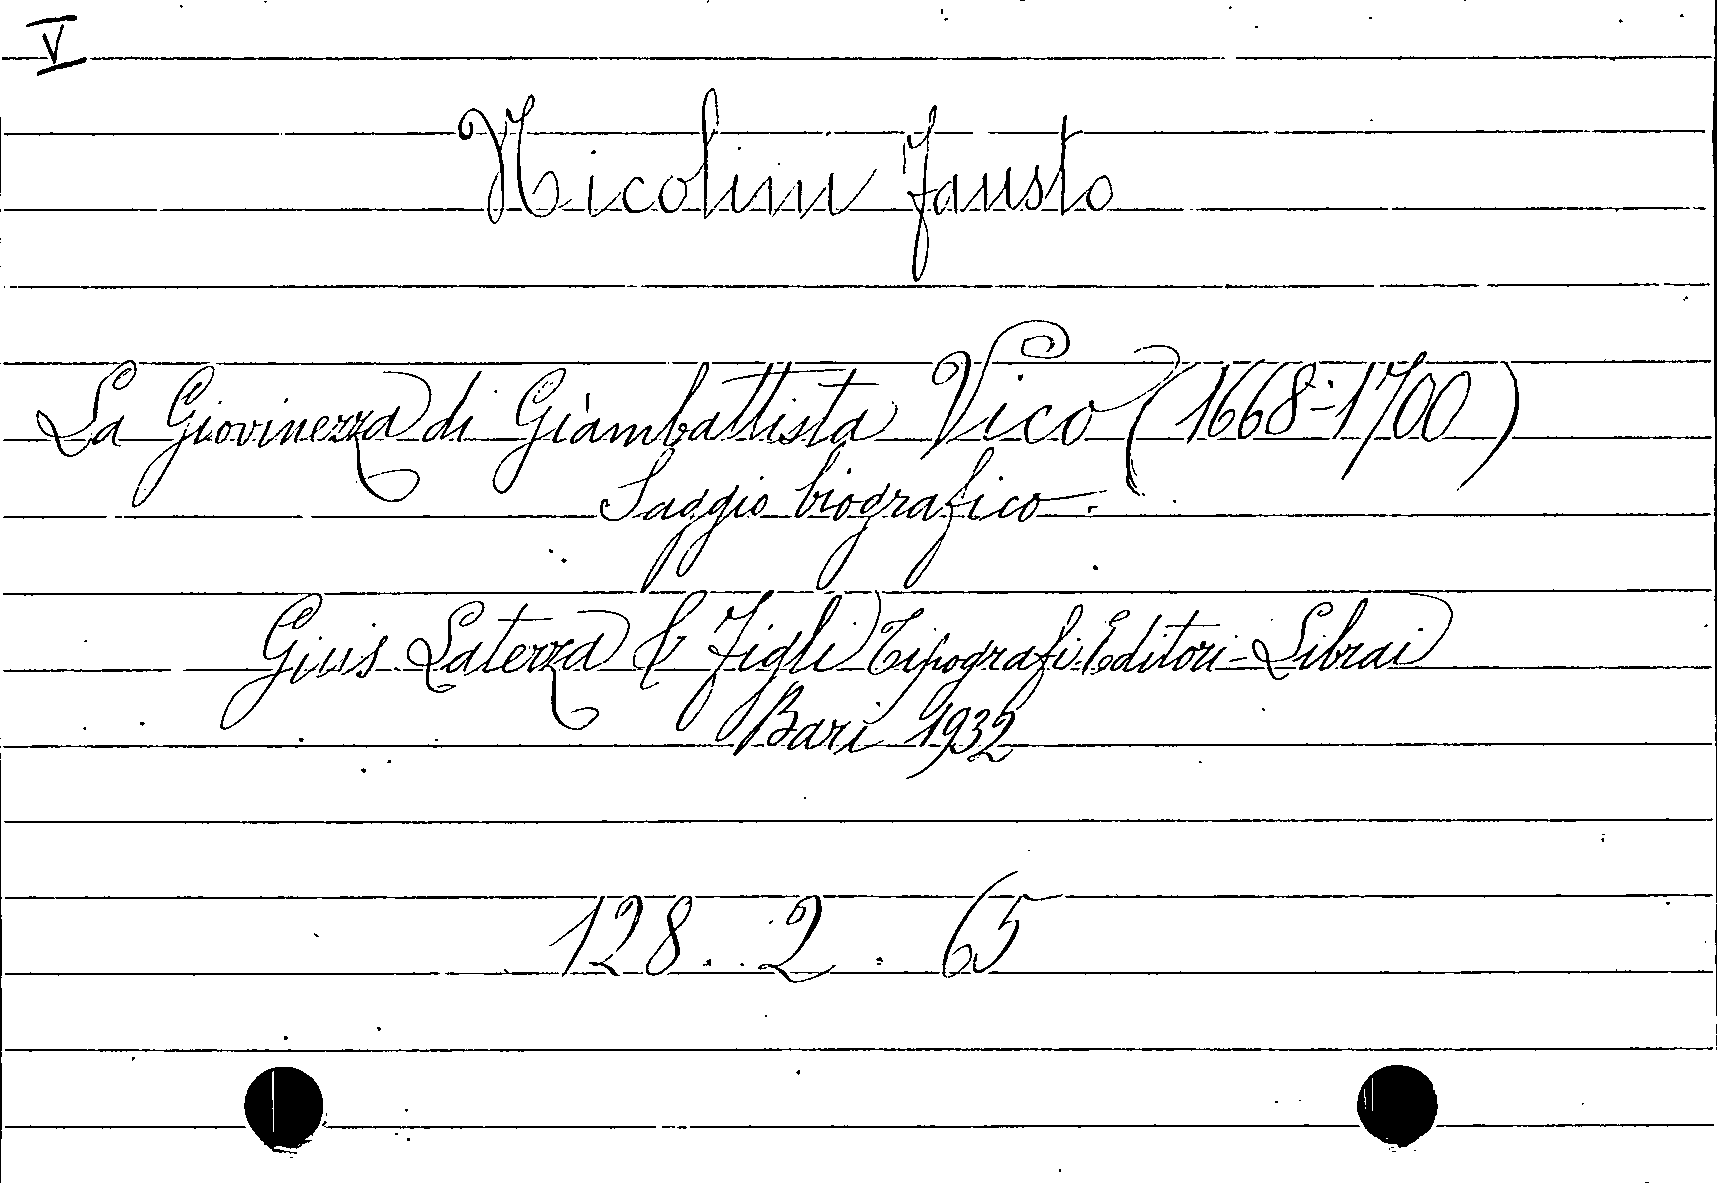 V
Nicolini Fausto
La Giovinezza di Giambattista Vico (1668-1700)
Saggio biografico.
Gius Laterza & Figli Tipografi-Editori-Librai
Bari 1932
128. 2. 65